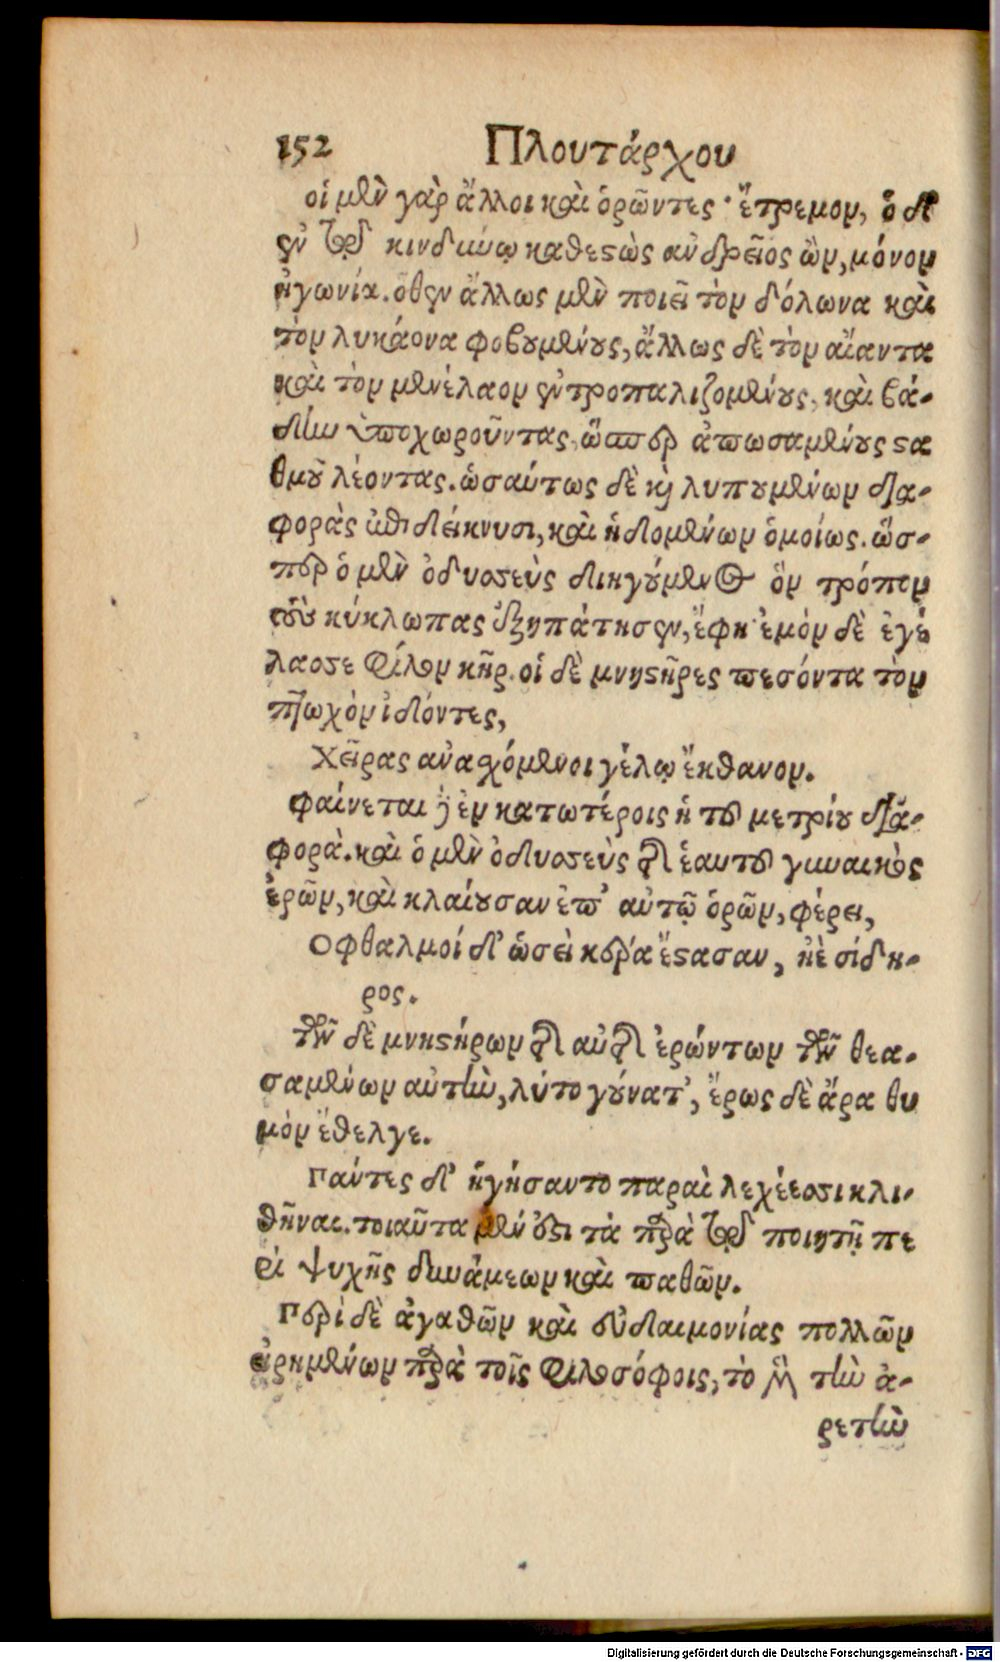 152 Πλουτάρχου
οἱ μὲν γὰρ ἄλλοι καὶ ὁρῶντες ἔτρεμον, ὁ δὲ
ἐν τῷ κινδύνῳ καθεστὼς ἀνδρεῖος ὢν, μόνον
ἠγωνία. ὅθεν ἄλλως μὲν ποιεῖ τὸν δόλωνα καὶ
τὸν λυκάονα φοβουμένους, ἄλλως δὲ τὸν αἴαντα
καὶ τὸν μενέλαον ἐντροπαλιζομένους, καὶ βά-
δην ὑποχωροῦντας, ὥσπερ ἀπωσαμένους στα
θμοῦ λέοντας. ὡσαύτως δὲ καὶ λυπουμένων δια-
φορὰς ἐπιδείκνυσι, καὶ ἡδομένων ὁμοίως. ὥσ-
περ ὁ μὲν ὀδυσσεὺς διηγούμενος ὃν τρόπον
τοὺς κύκλωπας ἐξηπάτησεν, ἔφη ἐμὸν δὲ ἐγέ
λασσε φίλον κῆρ. οἱ δὲ μνηστῆρες πεσόντα τὸν
πτωχὸν ἰδόντες,
Χεῖρας ἀναχόμενοι γέλῳ ἔκθανον.
φαίνεται γὰρ ἐν κατωτέροις ἡ τοῦ μετρίου δια-
φορὰ. καὶ ὁ μὲν ὀδυσσεὺς τῆς ἑαυτοῦ γυναικὸς
ἐρῶν, καὶ κλαίουσαν ἐπ' αὐτῷ ὁρῶν, φέρει,
Οφθαλμοί δ' ὡσεὶ κέρα ἔστασαν, ἠὲ σίδη-
ρος.
τῶν δὲ μνηστήρων τῆς αὐτῆς ἐρώντων τῶν θεα-
σαμένων αὐτὴν, λύτο γούνατ', ἔρως δὲ ἄρα θυ
μὸν ἔθελγε.
Πάντες δ' ἠγήσαντο παραὶ λεχέεσσι κλι-
θῆναι. τοιαῦτα μέν ἐστι τὰ παρὰ τῷ ποιητῇ πε
ρὶ ψυχῆς δυνάμεων καὶ παθῶν.
Περὶ δὲ ἀγαθῶν καὶ εὐδαιμονίας πολλῶν
εἰρημένων παρὰ τοῖς φιλοσόφοις, τὸ μὲν τὴν ἀ-
ρετὴν
Digitalisierung gefördert durch die Deutsche Forschungsgemeinschaft - DFG